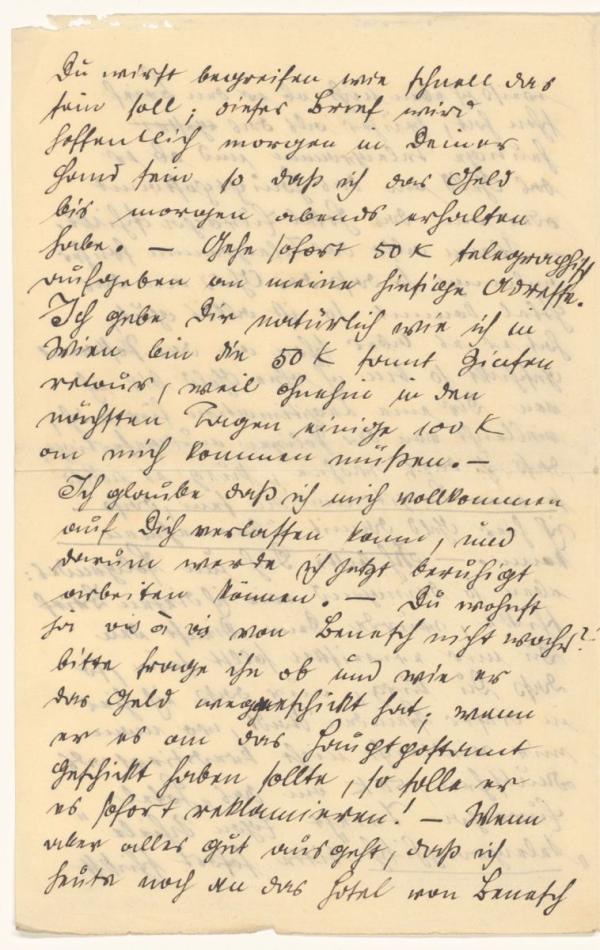 Du wirst begreifen wie schnell das
sein soll; dieser Brief wird
hoffentlich morgen in Deiner
Hand sein so daß ich das Geld
bis morgen abends erhalten
habe. — Gehe sofort 50 K telegraphisch
aufgeben an meine hiesige Adresse.
Ich gebe Dir natürlich wie ich in
Wien bin die 50 K samt Zinsen
retour, weil ohnehin in den
nächsten Tagen einige 100 K
an mich kommen müßen. —
Ich glaube daß ich mich vollkommen
auf Dich verlassen kann, und
darum werde ich jetzt beruhigt
arbeiten können. — Du wohnst
ja vis à vis von Benesch nicht wahr?
bitte frage ihn ob und wie er
das Geld weggeschickt hat; wenn
er es an das Hauptpostamt
geschickt haben sollte, so solle er
es sofort reklamieren! — Wenn
aber alles gut ausgeht, daß ich
heute noch an das Hotel von Benesch